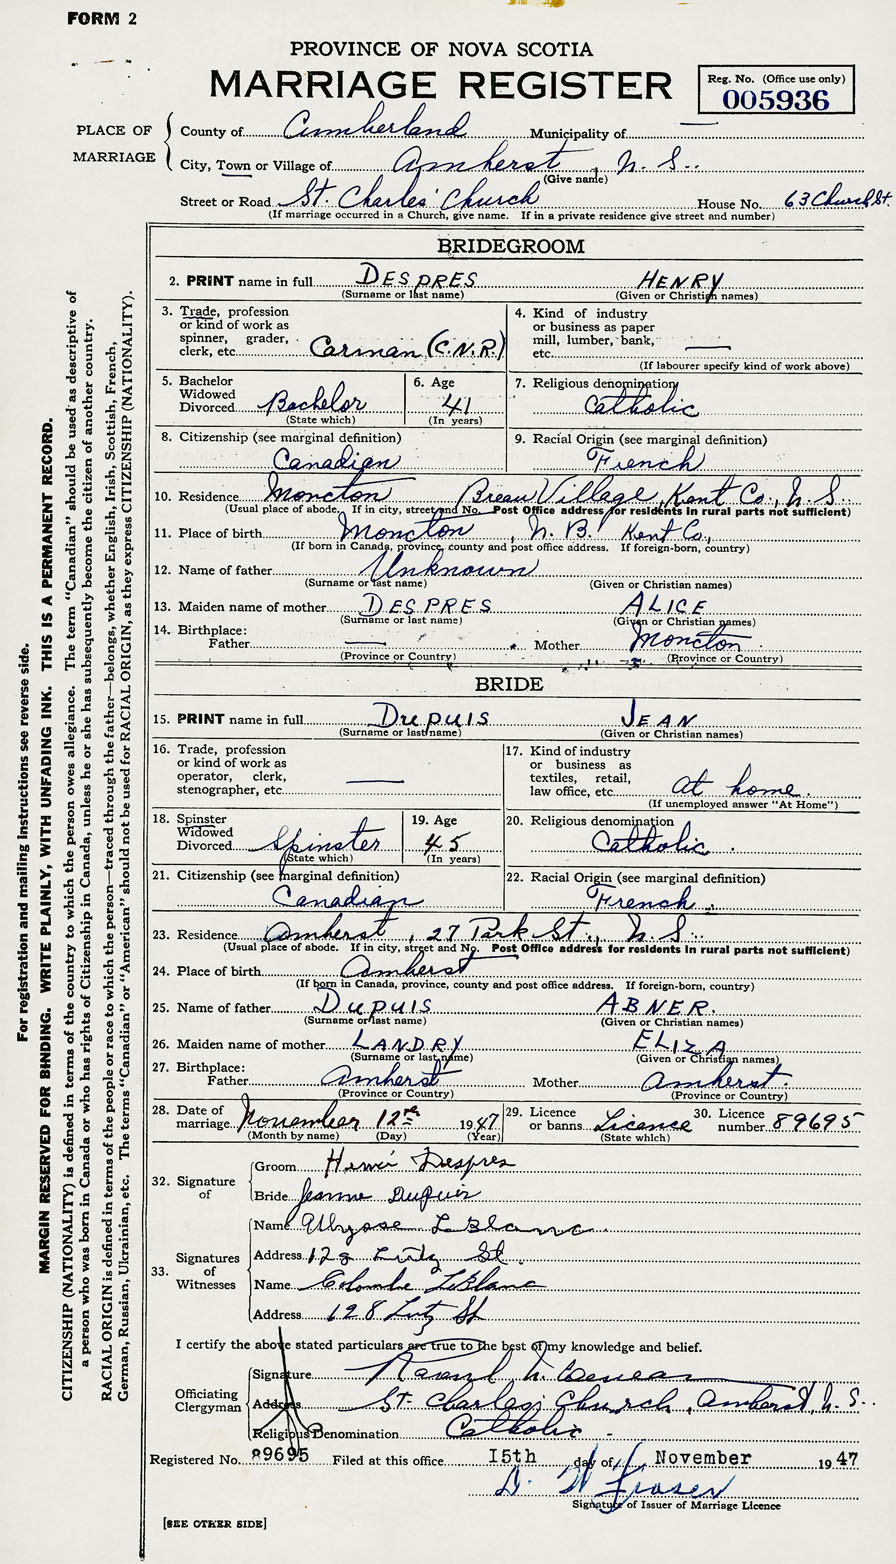 FORM 2
PROVINCE OF NOVA SCOTIA
MARRIAGE REGISTER
Reg. No. (Office use only)
005936
PLACE OF MARRIAGE
County of Cumberland Municipality of —
City, Town or Village of Amherst, N. S.
(Give name)
Street or Road St. Charles' Church House No. 63 Church St.
(If marriage occurred in a Church, give name. If in a private residence give street and number)
BRIDEGROOM
2. PRINT name in full DESPRES HENRY
(Surname or last name) (Given or Christian names)
3. Trade, profession or kind of work as spinner, grader, clerk, etc. Carman (C.N.R.)
4. Kind of industry or business as paper mill, lumber, bank, etc. —
(If labourer specify kind of work above)
5. Bachelor Widowed Divorced Bachelor
(State which)
6. Age 41
(In years)
7. Religious denomination Catholic
8. Citizenship (see marginal definition) Canadian
9. Racial Origin (see marginal definition) French
10. Residence Moncton Breau Village, Kent Co., N. S.
(Usual place of abode. If in city, street and No. Post Office address for residents in rural parts not sufficient)
11. Place of birth Moncton, N. B. Kent Co.,
(If born in Canada, province, county and post office address. If foreign-born, country)
12. Name of father Unknown
(Surname or last name) (Given or Christian names)
13. Maiden name of mother DESPRES ALICE
(Surname or last name) (Given or Christian names)
14. Birthplace: Father — Mother Moncton
(Province or Country) (Province or Country)
BRIDE
15. PRINT name in full DUPUIS JEAN
(Surname or last name) (Given or Christian names)
16. Trade, profession or kind of work as operator, clerk, stenographer, etc. —
17. Kind of industry or business as textiles, retail, law office, etc. At home.
(If unemployed answer "At Home")
18. Spinster Widowed Divorced Spinster
(State which)
19. Age 45
(In years)
20. Religious denomination Catholic.
21. Citizenship (see marginal definition) Canadian
22. Racial Origin (see marginal definition) French
23. Residence Amherst, 27 Park St., N. S.
(Usual place of abode. If in city, street and No. Post Office address for residents in rural parts not sufficient)
24. Place of birth Amherst
(If born in Canada, province, county and post office address. If foreign-born, country)
25. Name of father DUPUIS ABNER.
(Surname or last name) (Given or Christian names)
26. Maiden name of mother LANDRY ELIZA
(Surname or last name) (Given or Christian names)
27. Birthplace: Father Amherst Mother Amherst.
(Province or Country) (Province or Country)
28. Date of marriage November 12 1947
(Month by name) (Day) (Year)
29. Licence or banns Licence
(State which)
30. Licence number 89695
32. Signature of
Groom Henri Despres
Bride Jeanne Dupuis
33. Signatures of Witnesses
Name Ulysse LeBlanc
Address 128 Lutz St.
Name Colombe LeBlanc
Address 128 Lutz St
I certify the above stated particulars are true to the best of my knowledge and belief.
Officiating Clergyman
Signature
Address St. Charles' Church, Amherst, N. S.
Religious Denomination Catholic
Registered No. 89695 Filed at this office 15th day of November 1947
D. W. Fraser
Signature of Issuer of Marriage Licence
[SEE OTHER SIDE]
For registration and mailing instructions see reverse side.
MARGIN RESERVED FOR BINDING. WRITE PLAINLY, WITH UNFADING INK. THIS IS A PERMANENT RECORD.
CITIZENSHIP (NATIONALITY) is defined in terms of the country to which the person owes allegiance. The term "Canadian" should be used as descriptive of
a person who was born in Canada or who has rights of Citizenship in Canada, unless he or she has subsequently become the citizen of another country.
RACIAL ORIGIN is defined in terms of the people or race to which the person—traced through the father—belongs, whether English, Irish, Scottish, French,
German, Russian, Ukrainian, etc. The terms "Canadian" or "American" should not be used for RACIAL ORIGIN, as they express CITIZENSHIP (NATIONALITY).